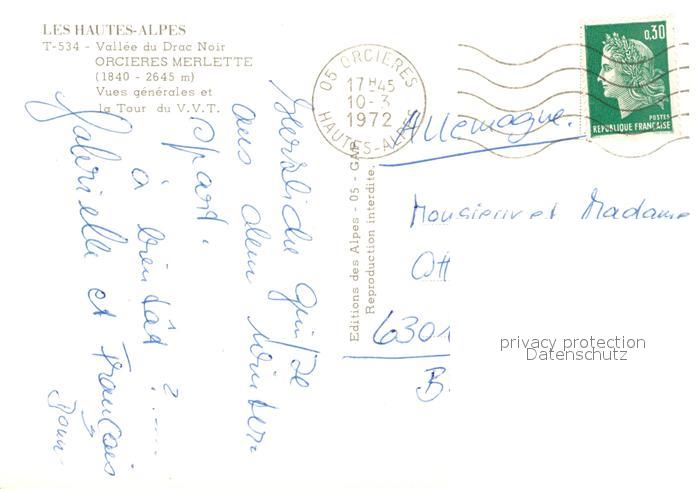 LES HAUTES-ALPES
T-534 - Vallée du Drac Noir
ORCIERES MERLETTE
(1840 - 2645 m)
Vues générales et
la Tour du V.V.T.
Herzliche Grüße
aus dem Winter-
sport.
à bientôt ?.....
Gabrielle et François
Editions des Alpes - 05 - GAP
Reproduction interdite.
05 ORCIERES
17H45
10-3
1972
HAUTES-ALPES
0,30
POSTES
REPUBLIQUE FRANÇAISE
Allemagne.
Monsieur et Madame
Ott
6301
B.
privacy protection
Datenschutz